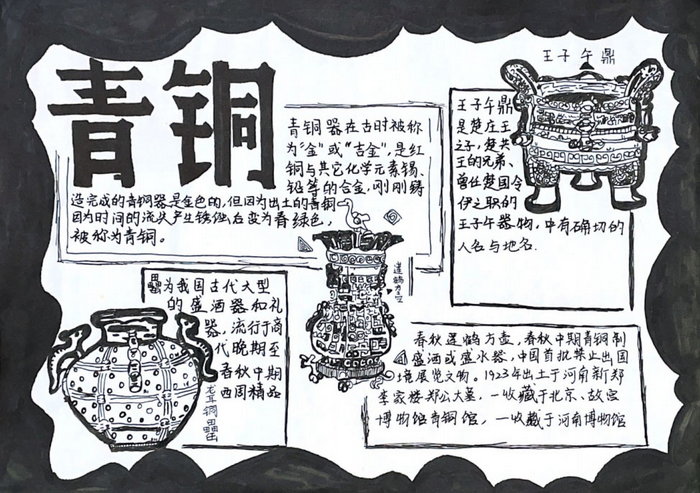 青铜
青铜器在古时被称
为“金”或“吉金”,是红
铜与其它化学元素锡、
铅等的合金,刚刚铸
造完成的青铜器是金色的,但因为出土的青铜
因为时间的流失产生锈蚀后变为青绿色,
被称为青铜。
王子午鼎
王子午鼎
是楚庄王
之子,楚共
王的兄弟、
曾任楚国令
伊之职的
王子午器物,中有确切的
人名与地名.
莲鹤方壶
罍为我国古代大型
的盛酒器和礼
器,流行于商
代晚期至
春秋中期
西周精品
青铜罍
春秋莲鹤方壶,春秋中期青铜制
盛酒或盛水器,中国首批禁止出国
境展览文物。1923年出土于河南新郑
李家楼郑公大墓,一收藏于北京、故宫
博物馆青铜馆,一收藏于河南博物馆